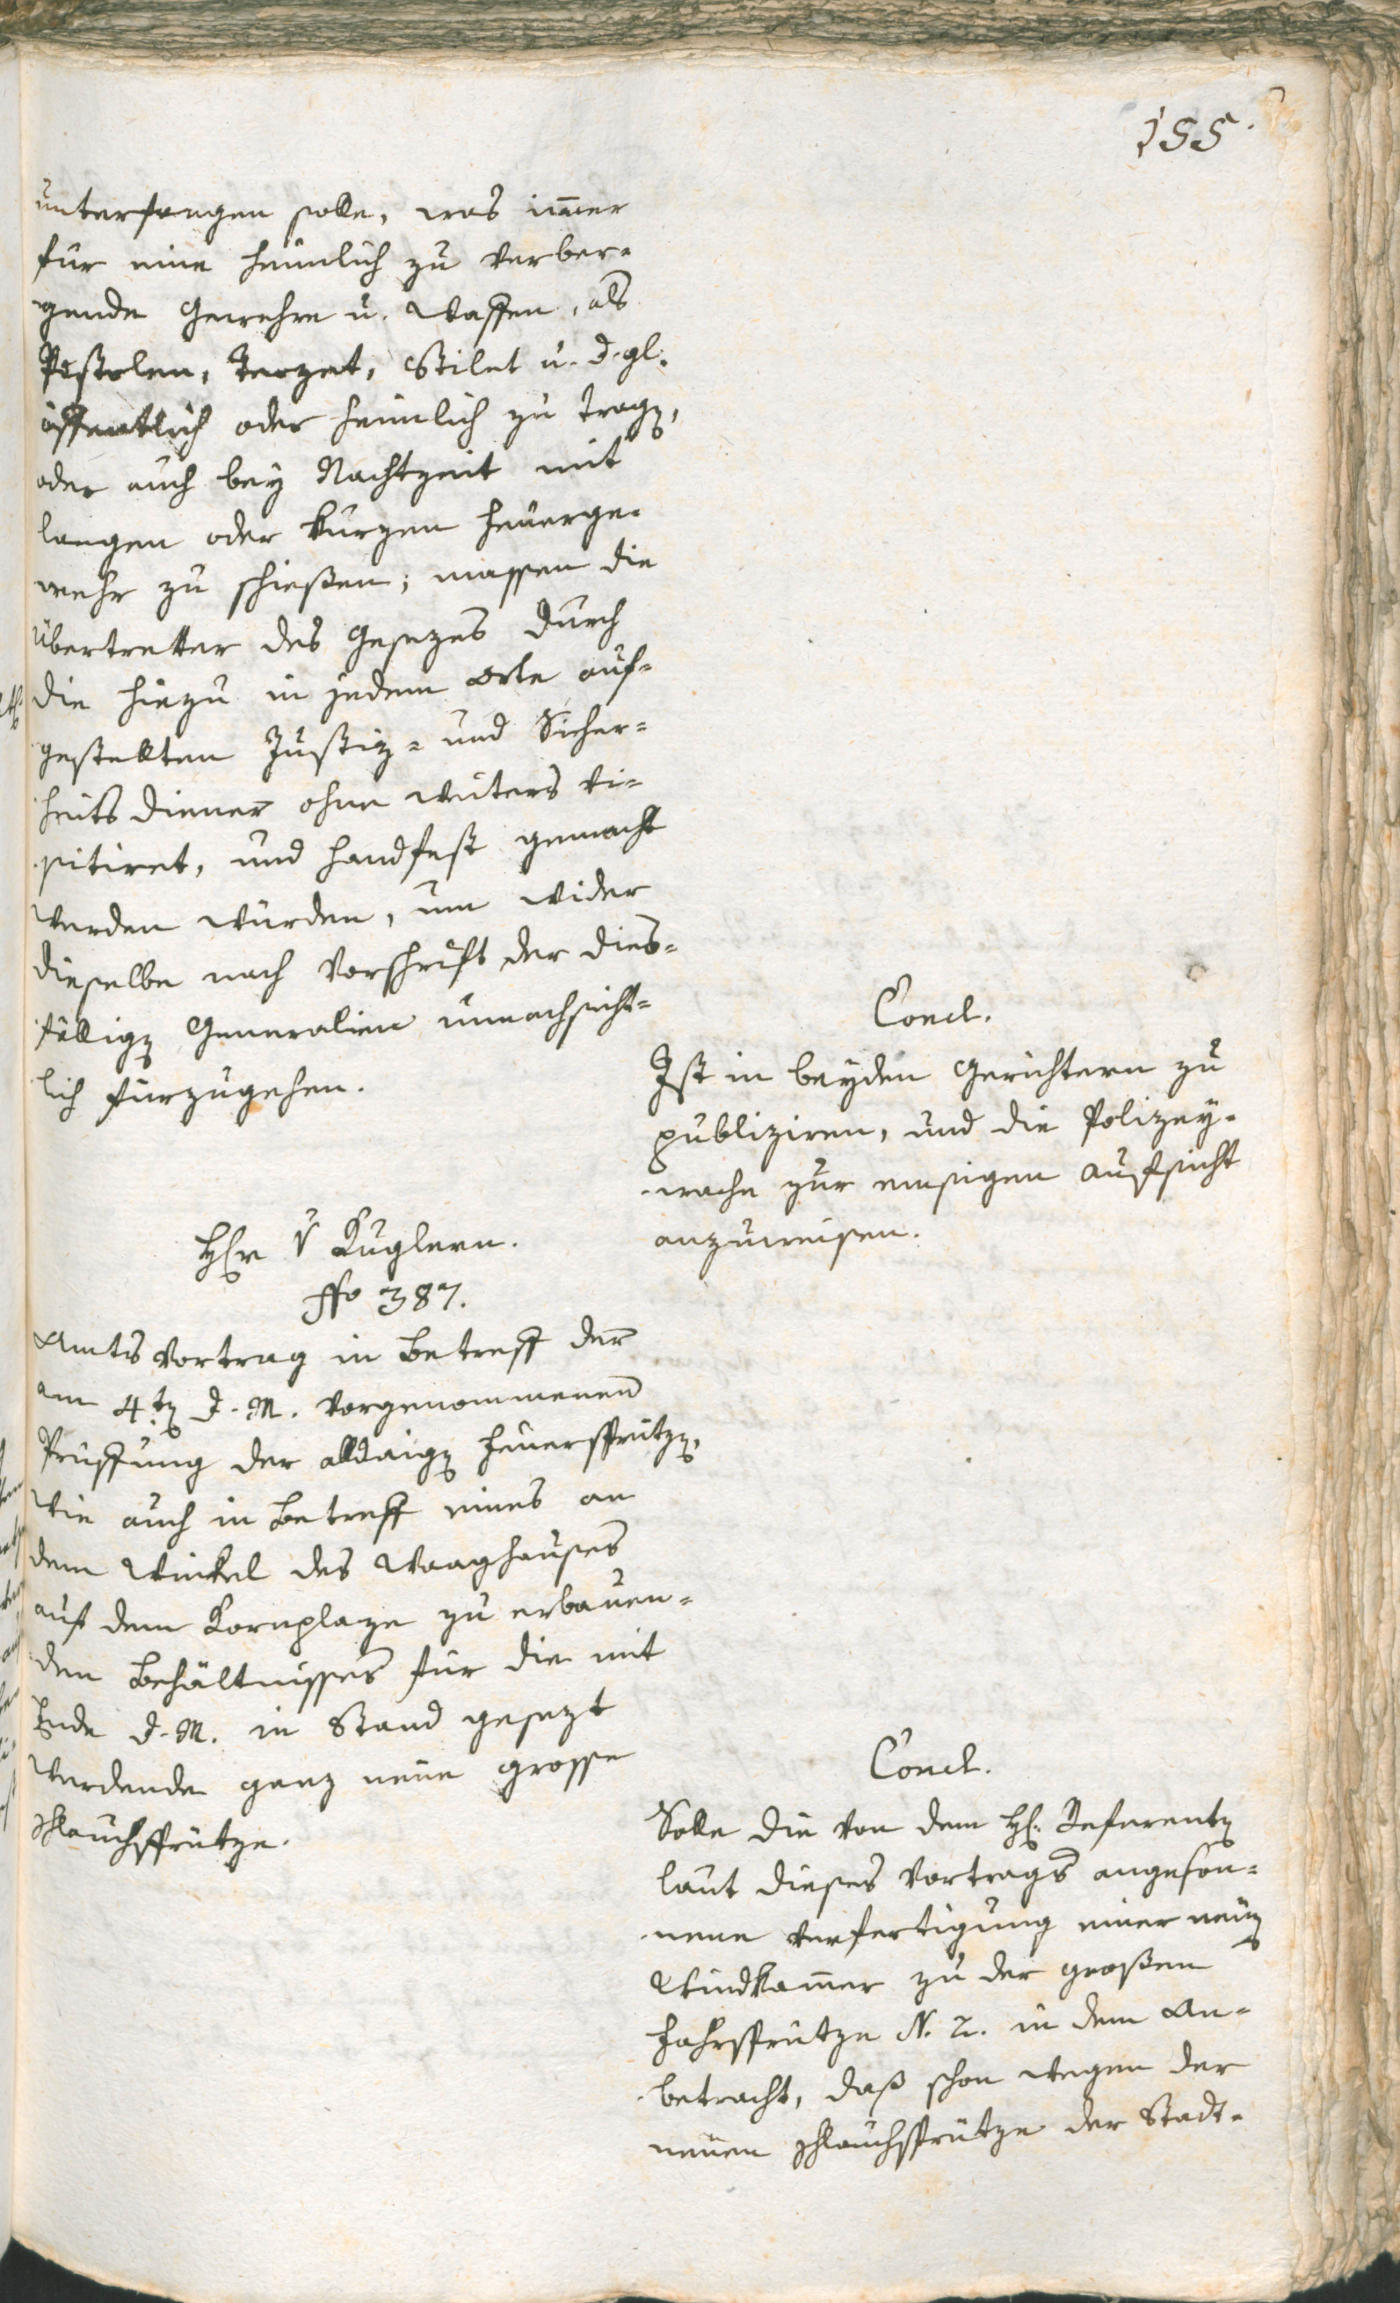 155.
unterfangen solle, was im̄er
für eine heimlich zu verber-
gende Gewehre u. Waffen, als
Pistolen, Terzet, Stilet u. d. gl.
öffentlich oder heimlich zu tragen,
oder auch bey Nachtzeit mit
langen oder kurzen Feuerge-
wehr zu schießen; massen die
Übertretter des Gesezes durch
die hiezu in jedem Orte auf-
gestellten Justiz- und Sicher-
heits diener ohne weiters vi-
sitiret, und handfest gemacht
werden würden, um wider
dieselbe nach Vorschrift der dies-
fälligen Generalien unnachsicht-
lich fürzugehen.
Concl.
Ist in beyden Gerichtern zu
publiziren, und die Polizey-
wache zur emsigen Aufsicht
anzuweisen.
Hℓ: v Kuglern.
ffo 387.
Amts Vortrag in Betreff der
am 4ten d. M. vorgenommenen
Prüffung der alldaigen Feuersprützen,
wie auch in Betreff eines an
dem Winkel des Waaghauses
auf dem Kornplaze zu erbauen-
den Behältnisses für die mit
Ende d. M. in Stand gesezt
werdende ganz neue grosse
Schlauchsprütze.
Concl.
Solle die von dem H: Referenten
laut dieses Vortrags angeson-
nene Verfertigung einer neuen
Windkam̄er zu der großen
Fahrsprütze N. 2. in dem An-
betracht, daß schon wegen der
neuen Schlauchsprütze der Stadt-